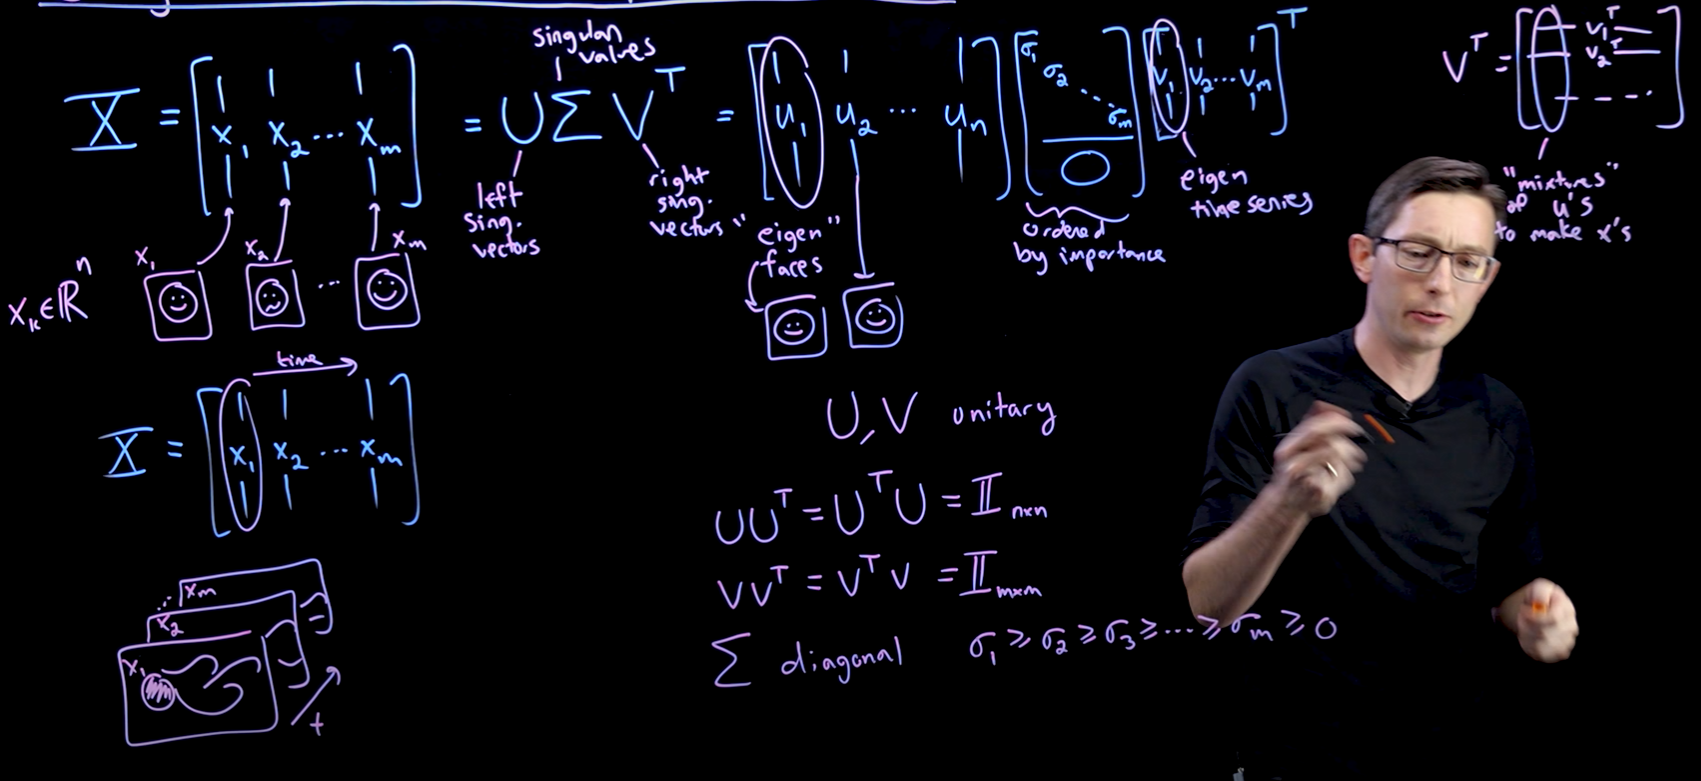 X = [x₁ x₂ ... xₘ] = U Σ Vᵀ = [u₁ u₂ ... uₙ] [σ₁ σ₂ ... σₘ 0] [v₁ v₂ ... vₘ]ᵀ
singular values
left sing. vectors
right sing. vectors
"eigen" faces
ordered by importance
eigen time series
Vᵀ = [v₁ᵀ v₂ᵀ ...]
"mixtures" of u's to make x's
xₖ ∈ ℝⁿ
x₁ x₂ ... xₘ
time
X = [x₁ x₂ ... xₘ]
xₘ
x₂
x₁
t
U, V unitary
UUᵀ = UᵀU = 𝕀ₙₓₙ
VVᵀ = VᵀV = 𝕀ₘₓₘ
Σ diagonal σ₁ ≥ σ₂ ≥ σ₃ ≥ ... ≥ σₘ ≥ 0